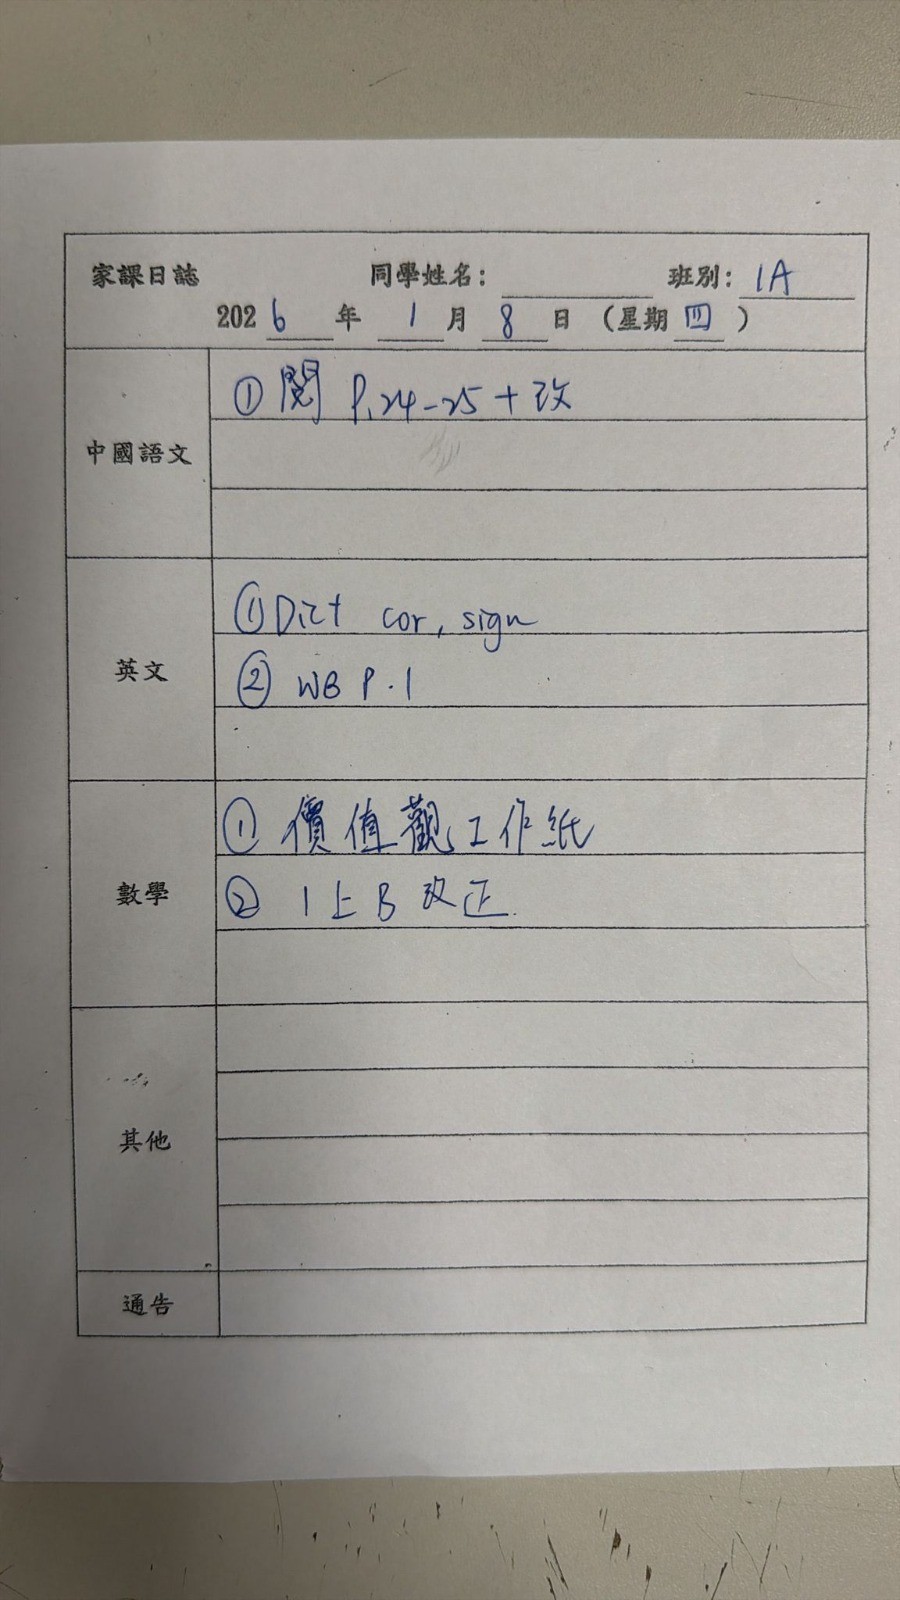 家課日誌 同學姓名： 班別：1A
2026年1月8日（星期四）
中國語文
① 閱 P.24-25 + 改
英文
① Dict cor, sign
② WB P.1
數學
① 價值觀工作紙
② 1上B 改正
其他
通告